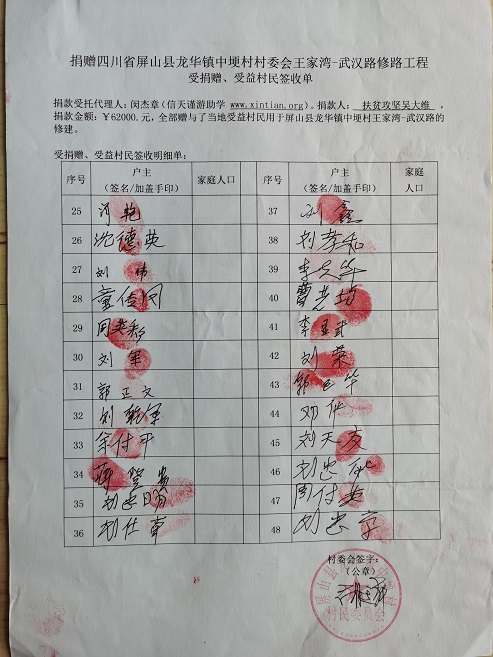 捐赠四川省屏山县龙华镇中埂村村委会王家湾-武汉路修路工程
受捐赠、受益村民签收单
捐款受托代理人：闵杰章（信天谨游助学 www.xintian.org）。捐款人： 扶贫攻坚吴大维 ，
捐款金额：￥62000.元，全部赠与了当地受益村民用于屏山县龙华镇中埂村王家湾-武汉路的
修建。
受捐赠、受益村民签收明细单：
序号 户主 家庭人口 序号 户主 家庭
（签名/加盖手印） （签名/加盖手印） 人口
25 37 刘鑫
26 沈德英 38 刘孝和
27 刘伟 39
28 童传同 40
29 周英 41
30 刘军 42 刘荣
31 郭正文 43
32 44 邓
33 余付平 45 刘天友
34 蒋登贵 46 刘忠
35 刘忠明 47 周付
36 刘仕章 48 刘忠
村委会签字：
（公章）
屏山县
村民委员会